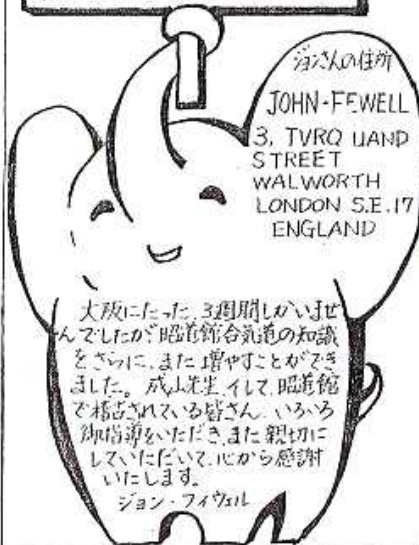 ジョンさんの住所
JOHN・FEWELL
3, TVRQ UAND
STREET
WALWORTH
LONDON S.E.17
ENGLAND
大阪にたった、3週間しかいませ
んでしたが昭道館合気道の知識
をさらに、また増やすことができ
ました。成山先生、そして、昭道館
で稽古されている皆さん、いろいろ
御指導をいただき、また親切に
していただいて、心から感謝
いたします。
ジョン・フィウェル